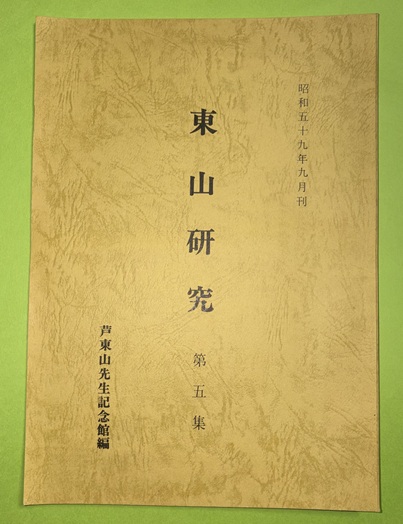 昭和五十九年九月刊
東山研究 第五集
芦東山先生記念館編